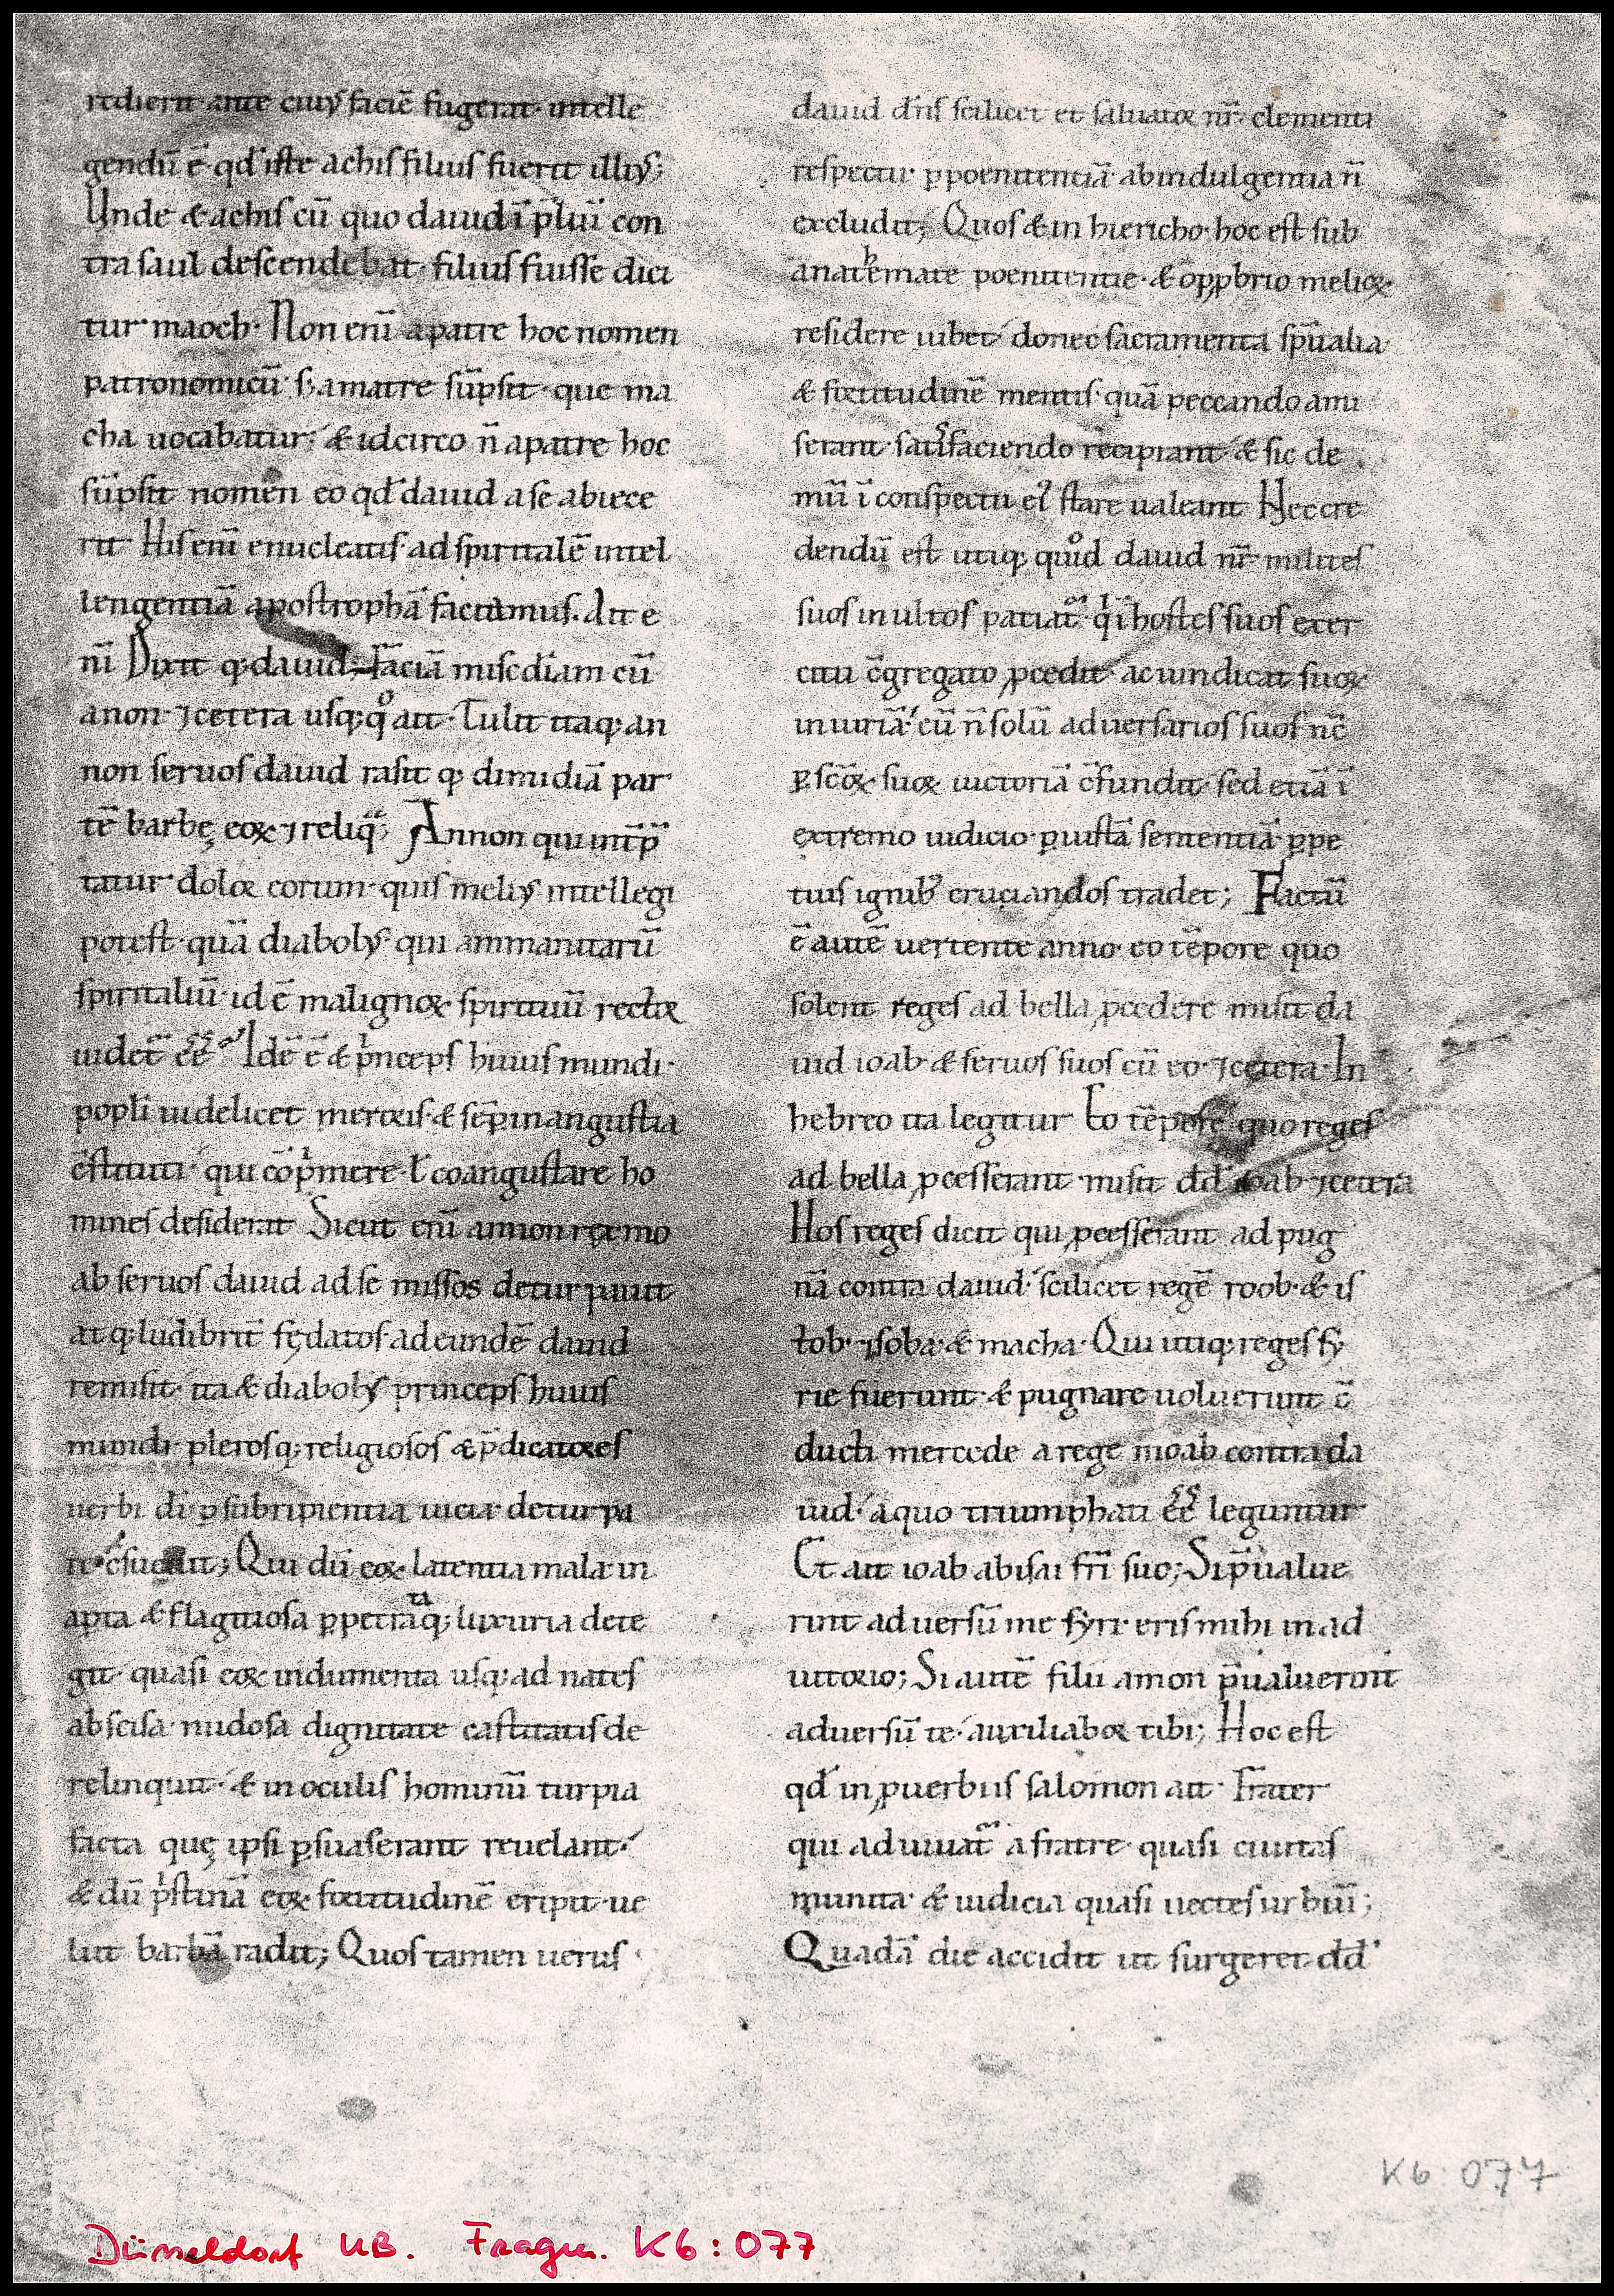 rediens ante cuiꝰ faciē fugerat· intelle
gendū ē· qđ iste achis filius fuerit illiꝰ;
Unde & achis cū quo dauid ī p̄liū con
tra saul descendebat· filius fuisse dici
tur· maoch· Non enī a patre hoc nomen
patronomicū· s; a matre sūpsit· que ma
cha uocabatur· & idcirco n̄ a patre hoc
sūpsit nomen eo qđ dauid a se abiece
rit· His enī enucleatis· ad spiritalē intel
lengentiā apostrophā faciamus. Ait e
nī Dixit q; dauid· Faciā misc̄diam cū
anon· ⁊ cetera usq; qͦ ait· Tulit itaq; an
non seruos dauid rasit q; dimidiā par
tē barbę eoꝝ· ⁊ reliq̄; Annon qui int̄p̄
tatur· dolor eorum· quis meliꝰ intellegi
potest· quā diabolꝰ qui ammanitarū
spiritaliū· id ē malignoꝝ spirituū rector
uidet̄ ēē· Idē ē & pͥnceps huius mundi·
popli uidelicet meroris· & sēp in angustia
c̄stituti· qui cōpͥmere· ł coangustare ho
mines desiderat Sicut enī annon rex mo
ab seruos dauid ad se missos deturpauit
atq; ludibrit̄ fędatos· ad eundē dauid
remisit· ita & diabolꝰ princeps huius
mundi· plerosq; religiosos & p̄dicatores
uerbi di· ꝑ subripientia uicia· deturpa
re c̄sueuit; Qui dū eoꝝ· latentia mala· in
apta & flagitiosa ꝑpetrataq; luxuria dete
git· quasi eoꝝ indumenta usq; ad nates
abscisa· nudosa dignitate castitatis de
relinquit· & in oculis hominū turpia
facta quę ipsi ꝑsuaserant reuelant·
& dū pͥstinā eoꝝ· fortitudinē eripit· ue
lut barbā radit; Quos tamen uerus·
dauid dn̄s scilicet et saluator nr̄· clementi
respectu· ꝑ poenitentiā ab indulgentia n̄
excludit; Quos & in hiericho· hoc est sub
anathemate poenitentie· & opꝓbrio melioꝝ·
residere iubet· donec sacramenta sp̄ualia
& fortitudinē mentis· quā peccando ami
serant· satisfaciendo recipiant· & sic de
mū ī conspectu eiꝰ stare ualeant Nec cre
dendū est utiq; quod dauid nr̄· milites
suos inultos patiat᷑· qͥ ī hostes suos exer
citu c̄gregato ꝓcedit· ac uindicat suoꝝ
iniuriā· cū n̄ solū aduersarios suos nc̄
ꝑ sc̄oꝝ suoꝝ uictoriā c̄fundit· sed etiā ī
extremo iudicio· ꝑ iustā sententiā· ꝑpe
tuis ignibꝰ cruciandos tradet; Factū
ē autē uertente anno· eo tēpore quo
solent reges ad bella ꝓcedere misit da
uid ioab & seruos suos cū eo· ⁊ cetera· In
hebreo ita legitur Eo tēpore quo reges
ad bella ꝓcesserant· misit đđ ioab ⁊ cetera
Hos reges dicit qui ꝓcesserant ad pug
nā contra dauid· scilicet regē roob· & is
tob· ⁊ soba· & macha· Qui utiq; reges sy
rie fuerunt· & pugnare uoluerunt c̄
ducti mercede a rege moab contra da
uid· a quo triumphati ēē leguntur
Et ait ioab abisai fr̄i suo; Si p̄ualue
rint aduersū me syri· eris mihi in ad
iutorio; Si autē filii amon p̄ualuerint
aduersū te· auxiliabor tibi; Hoc est
qđ in ꝓuerbiis salomon ait· Frater
qui adiuuat᷑ a fratre· quasi ciuitas
munita· & iudicia quasi uectes urbiū;
Quadā die accidit ut surgeret đđ·
K6:077
Düsseldorf UB. Fragm. K6:077